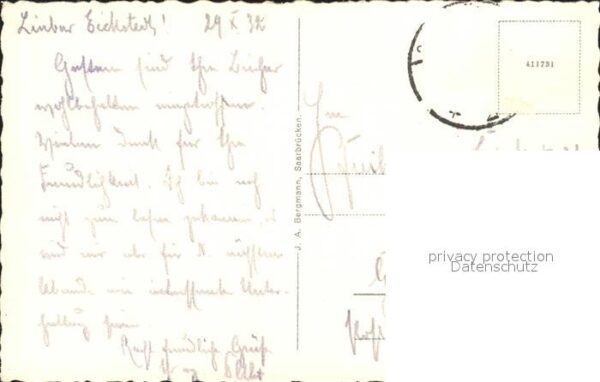 Lieber Eickstedt! 29 X 32
Gestern sind Ihre Bücher
wohlbehalten eingetroffen.
Vielen Dank für Ihre
Freundlichkeit. Ich bin noch
nicht zum lesen gekommen, es
wird mir aber für d. nächsten
Abende eine interessante Unter-
haltung sein.
Recht freundliche Grüße
J. A. Bergmann, Saarbrücken.
411791
privacy protection
Datenschutz